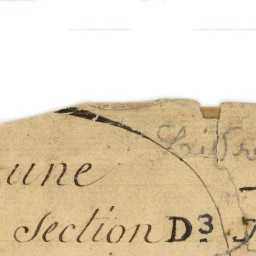 une
Section D.3